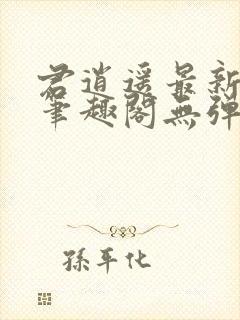 君逍遥最新
笔趣阁無弹
孫平化